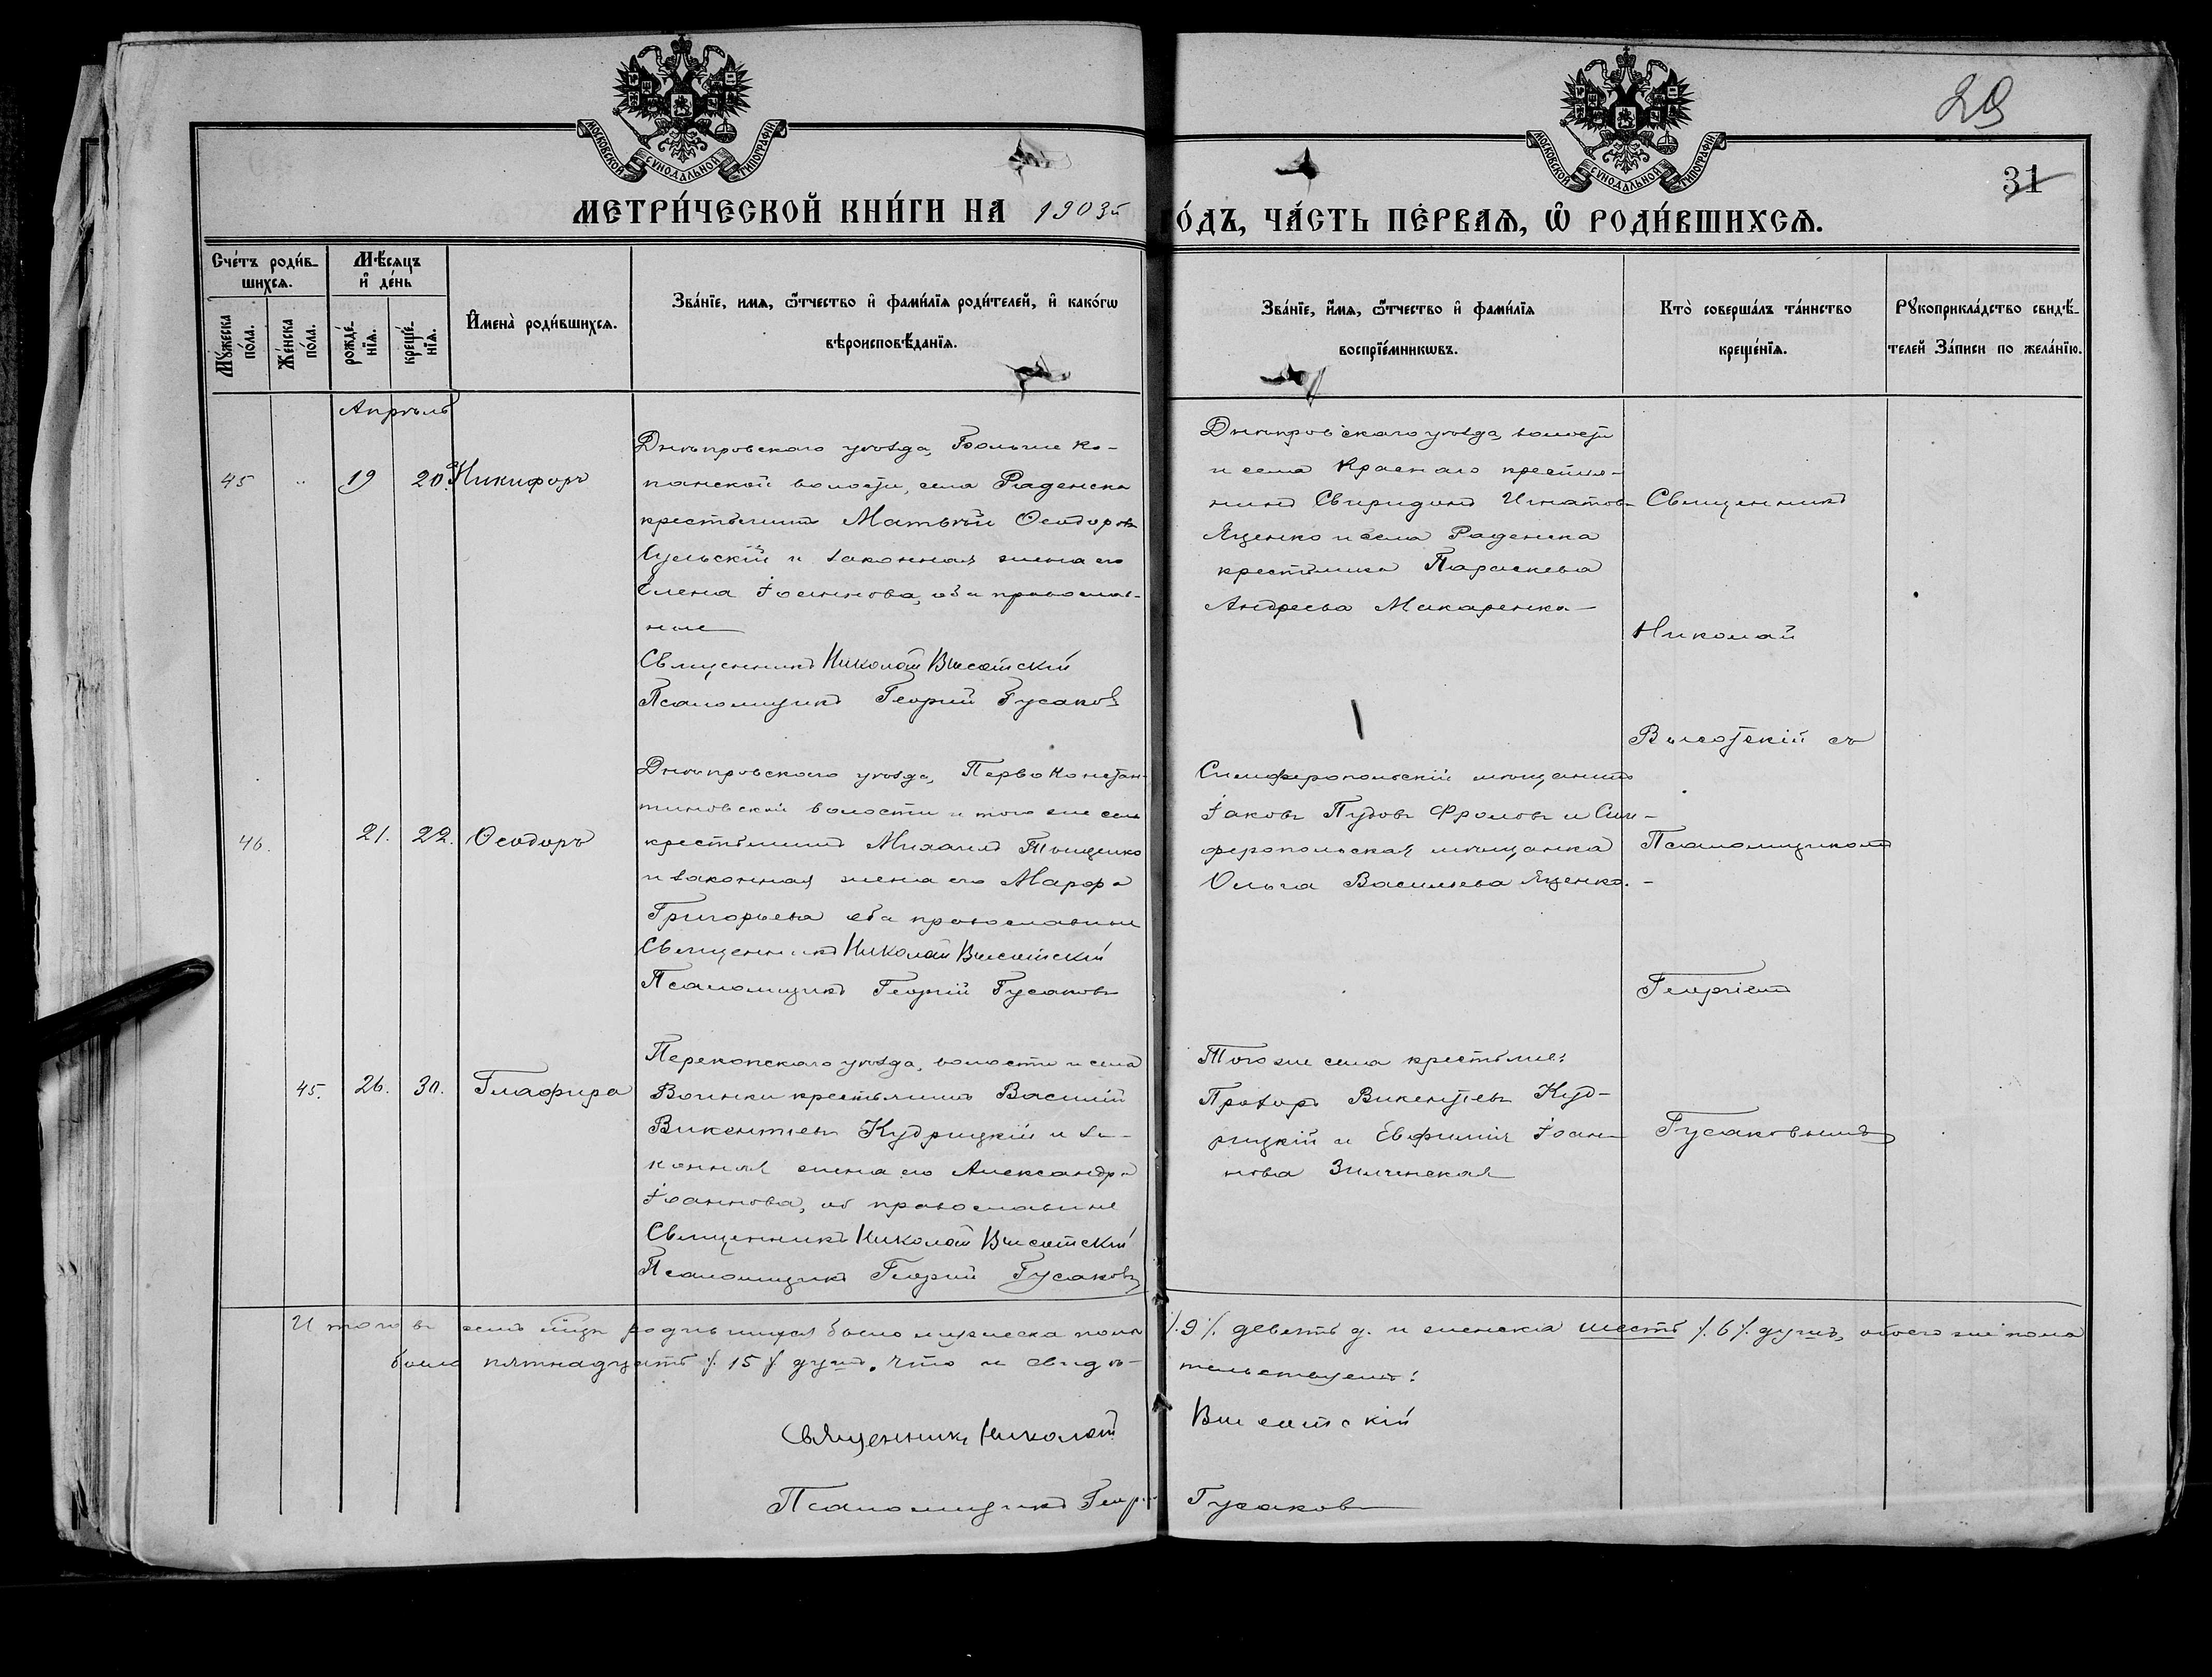 МОСКОВСКОЙ СѴНОДАЛЬНОЙ ТИПОГРАФІИ
МОСКОВСКОЙ СѴНОДАЛЬНОЙ ТИПОГРАФІИ
29
31
МЕТРИ́ЧЕСКОЙ КНИ́ГИ НА 1903й
О́ДЪ, ЧА́СТЬ ПЕ́РВАЯ, Ѽ РОДИ́ВШИХСЯ.
Сче́тъ роди́в-
шихся.
Мѣ́сяцъ
и҆ де́нь
Мꙋ́жеска
по́ла.
Же́нска
по́ла.
рожде́-
нїя.
креще́-
нїя.
И҆мена̀ роди́вшихся.
Зва́нїе, имя, ѻ҆́тчество и҆ фами́лїя роди́телей, и҆ како́гѡ
вѣроисповѣ́данїя.
Зва́нїе, и҆́мя, ѻ҆́тчество и҆ фами́лїя
воспрїе́мникѡвъ.
Кто̀ соверша́лъ та́инство
креще́нїя.
Рꙋкоприкла́дство свидѣ́-
телей За́писи по жела́нїю.
Апрѣль
45 " 19 20. Никифоръ
Днѣпровскаго уѣзда, Больше Ко-
панской волости, села Раденска
крестьянинъ Матвѣй Ѳеодоровъ
Елена Іоаннова, оба православ-
ные
Священникъ Николай Высотскій
Псаломщикъ Георгій Гусаковъ
Днѣпровскаго уѣзда, волости
и села Краснаго крестья-
нинъ Свиридонъ Игнатовъ
Яценко и села Раденска
крестьянка Параскева
Андреева Макаренко
Священникъ
Николай
Высотскій съ
Псаломщикомъ
Георгіемъ
Гусаковымъ
46. 21. 22. Ѳеодоръ
Днѣпровскаго уѣзда, Перво Констан-
тиновской волости и того же села
крестьянинъ Михаилъ Тищенко
и законная жена его Марфа
Григорьева оба православные
Священникъ Николай Высотскій
Псаломщикъ Георгій Гусаковъ
Симферопольскій мѣщанинъ
Іаковъ Пудовъ Фроловъ и Сим-
феропольская мѣщанка
Ольга Васильева Яценко. -
45. 26. 30. Глафира
Перекопскаго уѣзда, волости и села
Воинки крестьянинъ Василій
Викентіевъ Кудрицкій и за-
конная жена его Александра
Іоаннова, об православные
Священникъ Николай Высотскій
Псаломщикъ Георгій Гусаковъ
Того же села крестьяне:
Прохоръ Викентіевъ Куд-
рицкій и Евфимія Іоан-
нова Зилинская
Итого въ семъ мѣсяцѣ родившихся было мужеска пола /.9/. девять д. и женска шесть /.6/. душъ, обоего же пола
было пятнадцать /.15/. душъ, что и свидѣ-тельствуемъ:
Священникъ Николай Высотскій
Псаломщикъ Геор. Гусаковъ